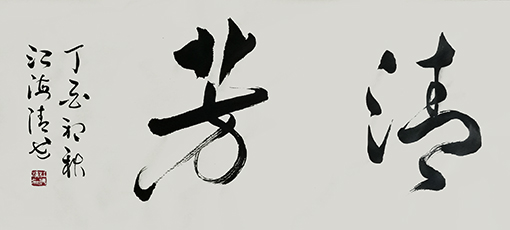 清芳
丁酉初秋
江海清书